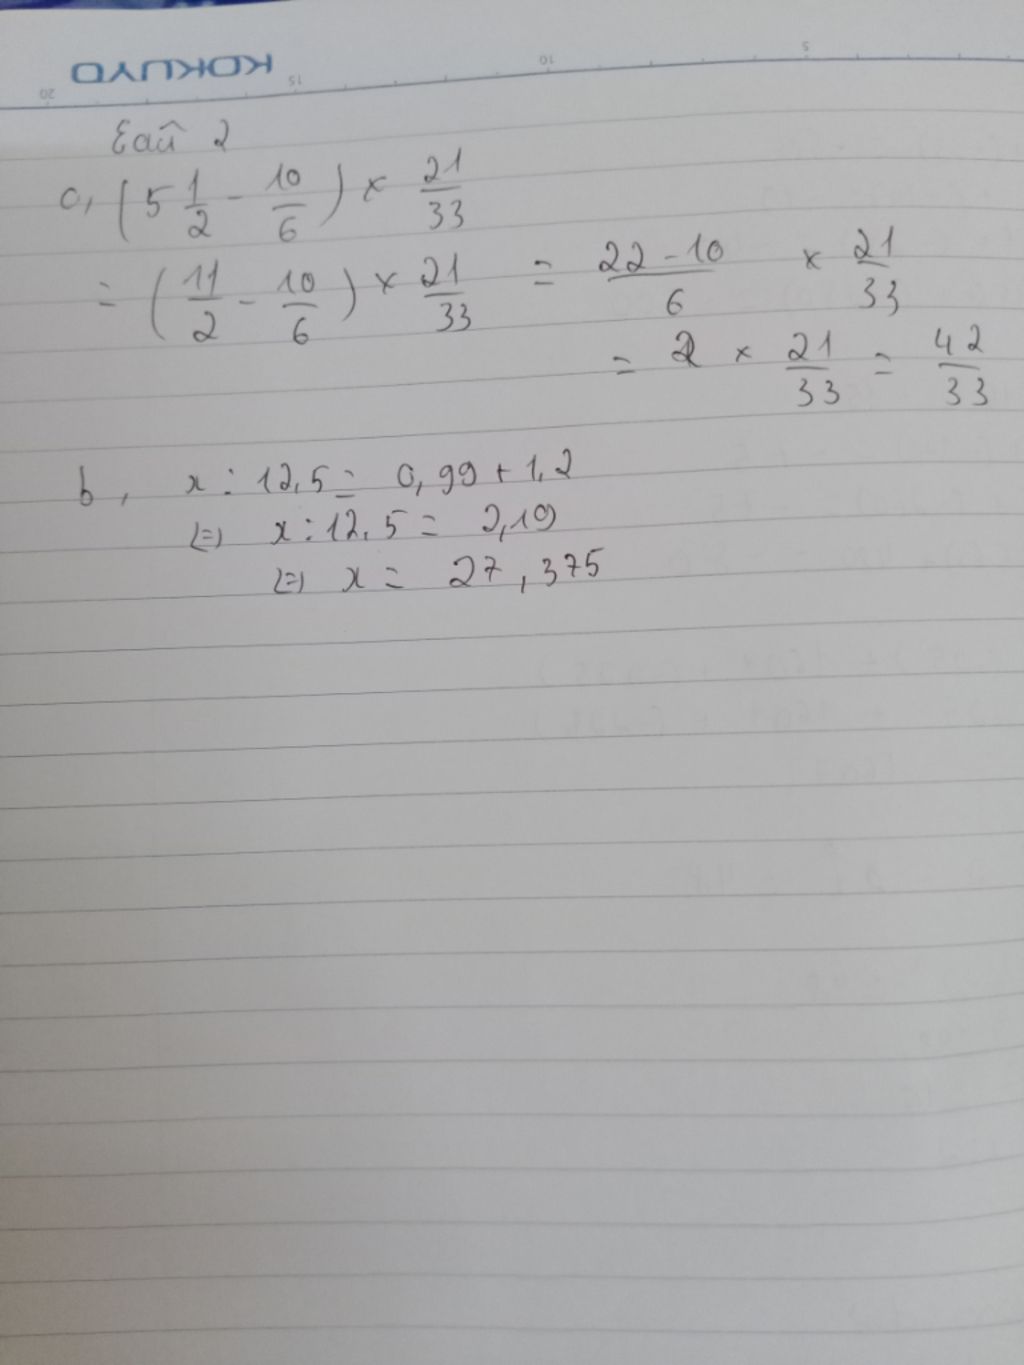 KOKUYO
20 15 10 5
Bài 2
a, (5 1/2 - 10/6) × 21/33
= (11/2 - 10/6) × 21/33 = (22 - 10)/6 × 21/33
= 2 × 21/33 = 42/33
b, x : 12,5 = 0,99 + 1,2
(=) x : 12,5 = 2,19
(=) x = 27,375